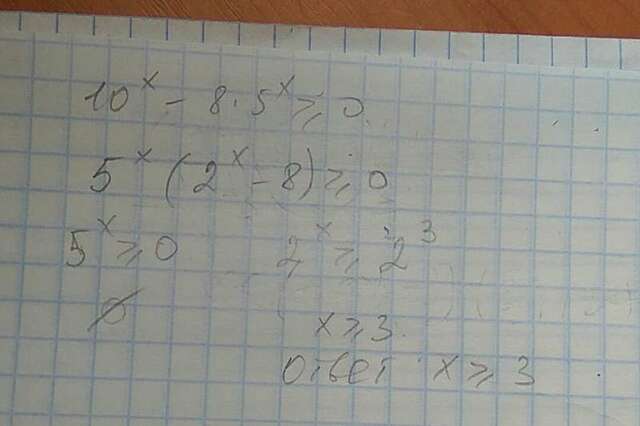 10^x - 8·5^x ⩾ 0
5^x (2^x - 8) ⩾ 0
5^x ⩾ 0 2^x ⩾ 2^3
∅
x ⩾ 3
Ответ x ⩾ 3